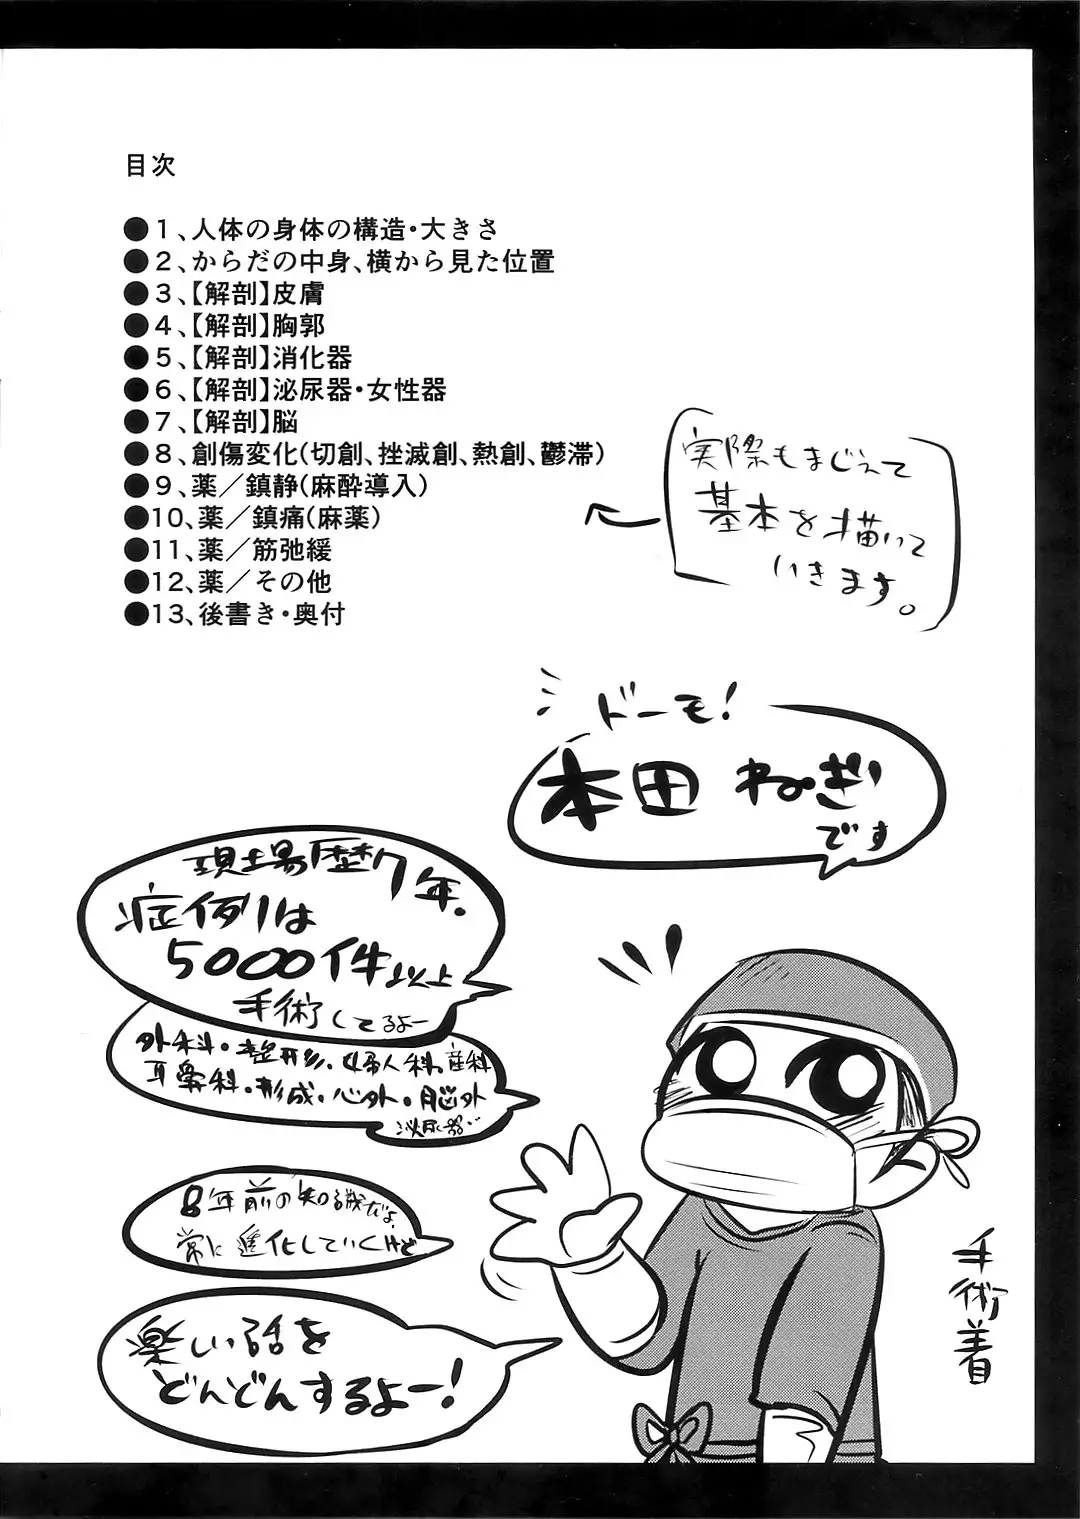 目次
●1、人体の身体の構造・大きさ
●2、からだの中身、横から見た位置
●3、【解剖】皮膚
●4、【解剖】胸郭
●5、【解剖】消化器
●6、【解剖】泌尿器・女性器
●7、【解剖】脳
●8、創傷変化(切創、挫滅創、熱創、鬱滞)
●9、薬／鎮静(麻酔導入)
●10、薬／鎮痛(麻薬)
●11、薬／筋弛緩
●12、薬／その他
●13、後書き・奥付
実際もまじえて
基本を描いて
いきます。
ドーモ!
本田 ねぎ
です
現場歴7年。
症例は
5000件以上
手術してるよー
外科・整形・婦人科・産科
耳鼻科・形成・心外・脳外
泌尿器…
8年前の知識だよ。
常に進化していくけど
楽しい話を
どんどんするよー!
手術着